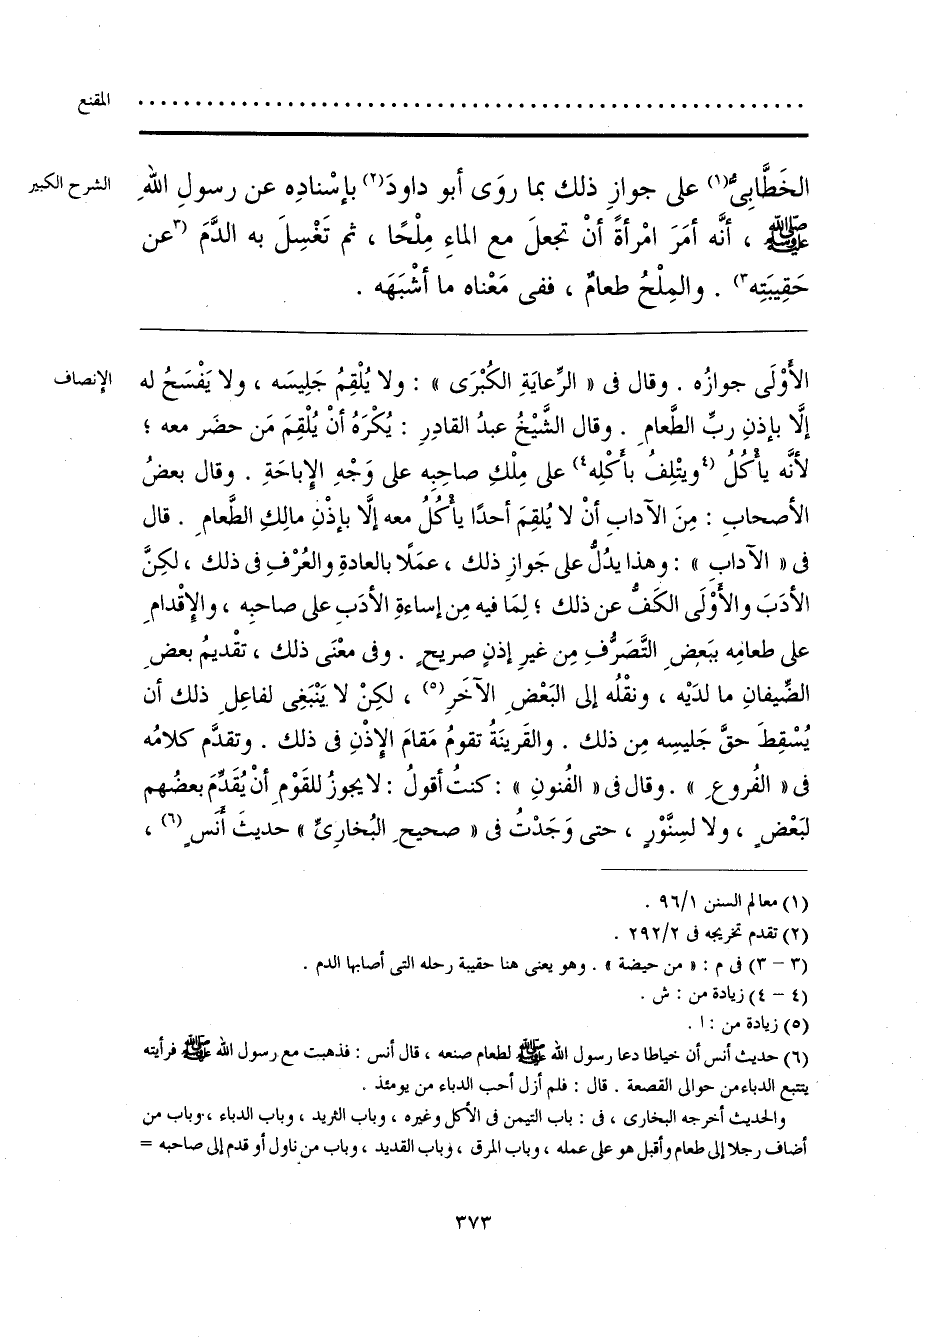 المقنع ........................................................
الشرح الكبير
الخَطَّابِىُّ(١) على جوازِ ذلك بما روَى أبو داودَ(٢) بإسْنادِه عن رسولِ اللهِ
ﷺ ، أنَّه أمَرَ امْرأةً أنْ تجعلَ مع الماءِ مِلْحًا ، ثم تَغْسِلَ به الدَّمَ (٣عن
حَقِيبَتِه٣) . والمِلْحُ طعامٌ ، ففى مَعْناه ما أشْبَهَه .
الإنصاف
الأَوْلَى جوازُه . وقال فى « الرِّعايَةِ الكُبْرَى » : ولا يُلْقِمُ جَلِيسَه ، ولا يَفْسَحُ له
إلَّا بإذنِ ربِّ الطَّعامِ . وقال الشَّيْخُ عبدُ القادرِ : يُكْرَهُ أنْ يُلْقِمَ مَن حضَر معه ؛
لأنَّه يأْكُلُ (٤ويتْلِفُ بأَكْلِه٤) على مِلْكِ صاحِبِه على وَجْهِ الإِباحَةِ . وقال بعضُ
الأصحابِ : مِنَ الآدابِ أنْ لا يُلقِمَ أحدًا يأْكُلُ معه إلَّا بإذْنِ مالِكِ الطَّعامِ . قال
فى « الآدابِ » : وهذا يدُلُّ على جَوازِ ذلك ، عمَلًا بالعادةِ والعُرْفِ فى ذلك ، لكِنَّ
الأدَبَ والأَوْلَى الكَفُّ عن ذلك ؛ لِمَا فيه مِن إساءةِ الأدَبِ على صاحبِه ، والإِقْدامِ
على طعامِه ببَعضِ التَّصَرُّفِ مِن غيرِ إذنٍ صريحٍ . وفى معْنَى ذلك ، تقْديمُ بعضِ
الضِّيفانِ ما لدَيْه ، ونقْلُه إلى البَعْضِ الآخَرِ(٥) ، لكِنْ لا يَنْبَغِى لفاعلِ ذلك أن
يُسْقِطَ حقَّ جَليسِه مِن ذلك . والقَرِينَةُ تقومُ مَقامَ الإِذْنِ فى ذلك . وتقدَّم كلامُه
فى « الفُروعِ » . وقال فى « الفُنونِ » : كنتُ أقولُ : لا يجوزُ للقَوْمِ أنْ يُقَدِّمَ بعضُهم
لبَعْضٍ ، ولا لسِنَّوْرٍ ، حتى وَجَدْتُ فى « صحيحِ البُخارِىِّ » حديثَ أنَسٍ(٦) ،
(١) معالم السنن ٩٦/١ .
(٢) تقدم تخريجه فى ٢٩٢/٢ .
(٣ - ٣) فى م : « من حيضة » . وهو يعنى هنا حقيبة رحله التى أصابها الدم .
(٤ - ٤) زيادة من : ش .
(٥) زيادة من : ا .
(٦) حديث أنس أن خياطا دعا رسول الله ﷺ لطعام صنعه ، قال أنس : فذهبت مع رسول الله ﷺ فرأيته
يتتبع الدباء من حوالى القصعة . قال : فلم أزل أحب الدباء من يومئذ .
والحديث أخرجه البخارى ، فى : باب التيمن فى الأكل وغيره ، وباب الثريد ، وباب الدباء ، وباب من
أضاف رجلا إلى طعام وأقبل هو على عمله ، وباب المرق ، وباب القديد ، وباب من ناول أو قدم إلى صاحبه =
٣٧٣